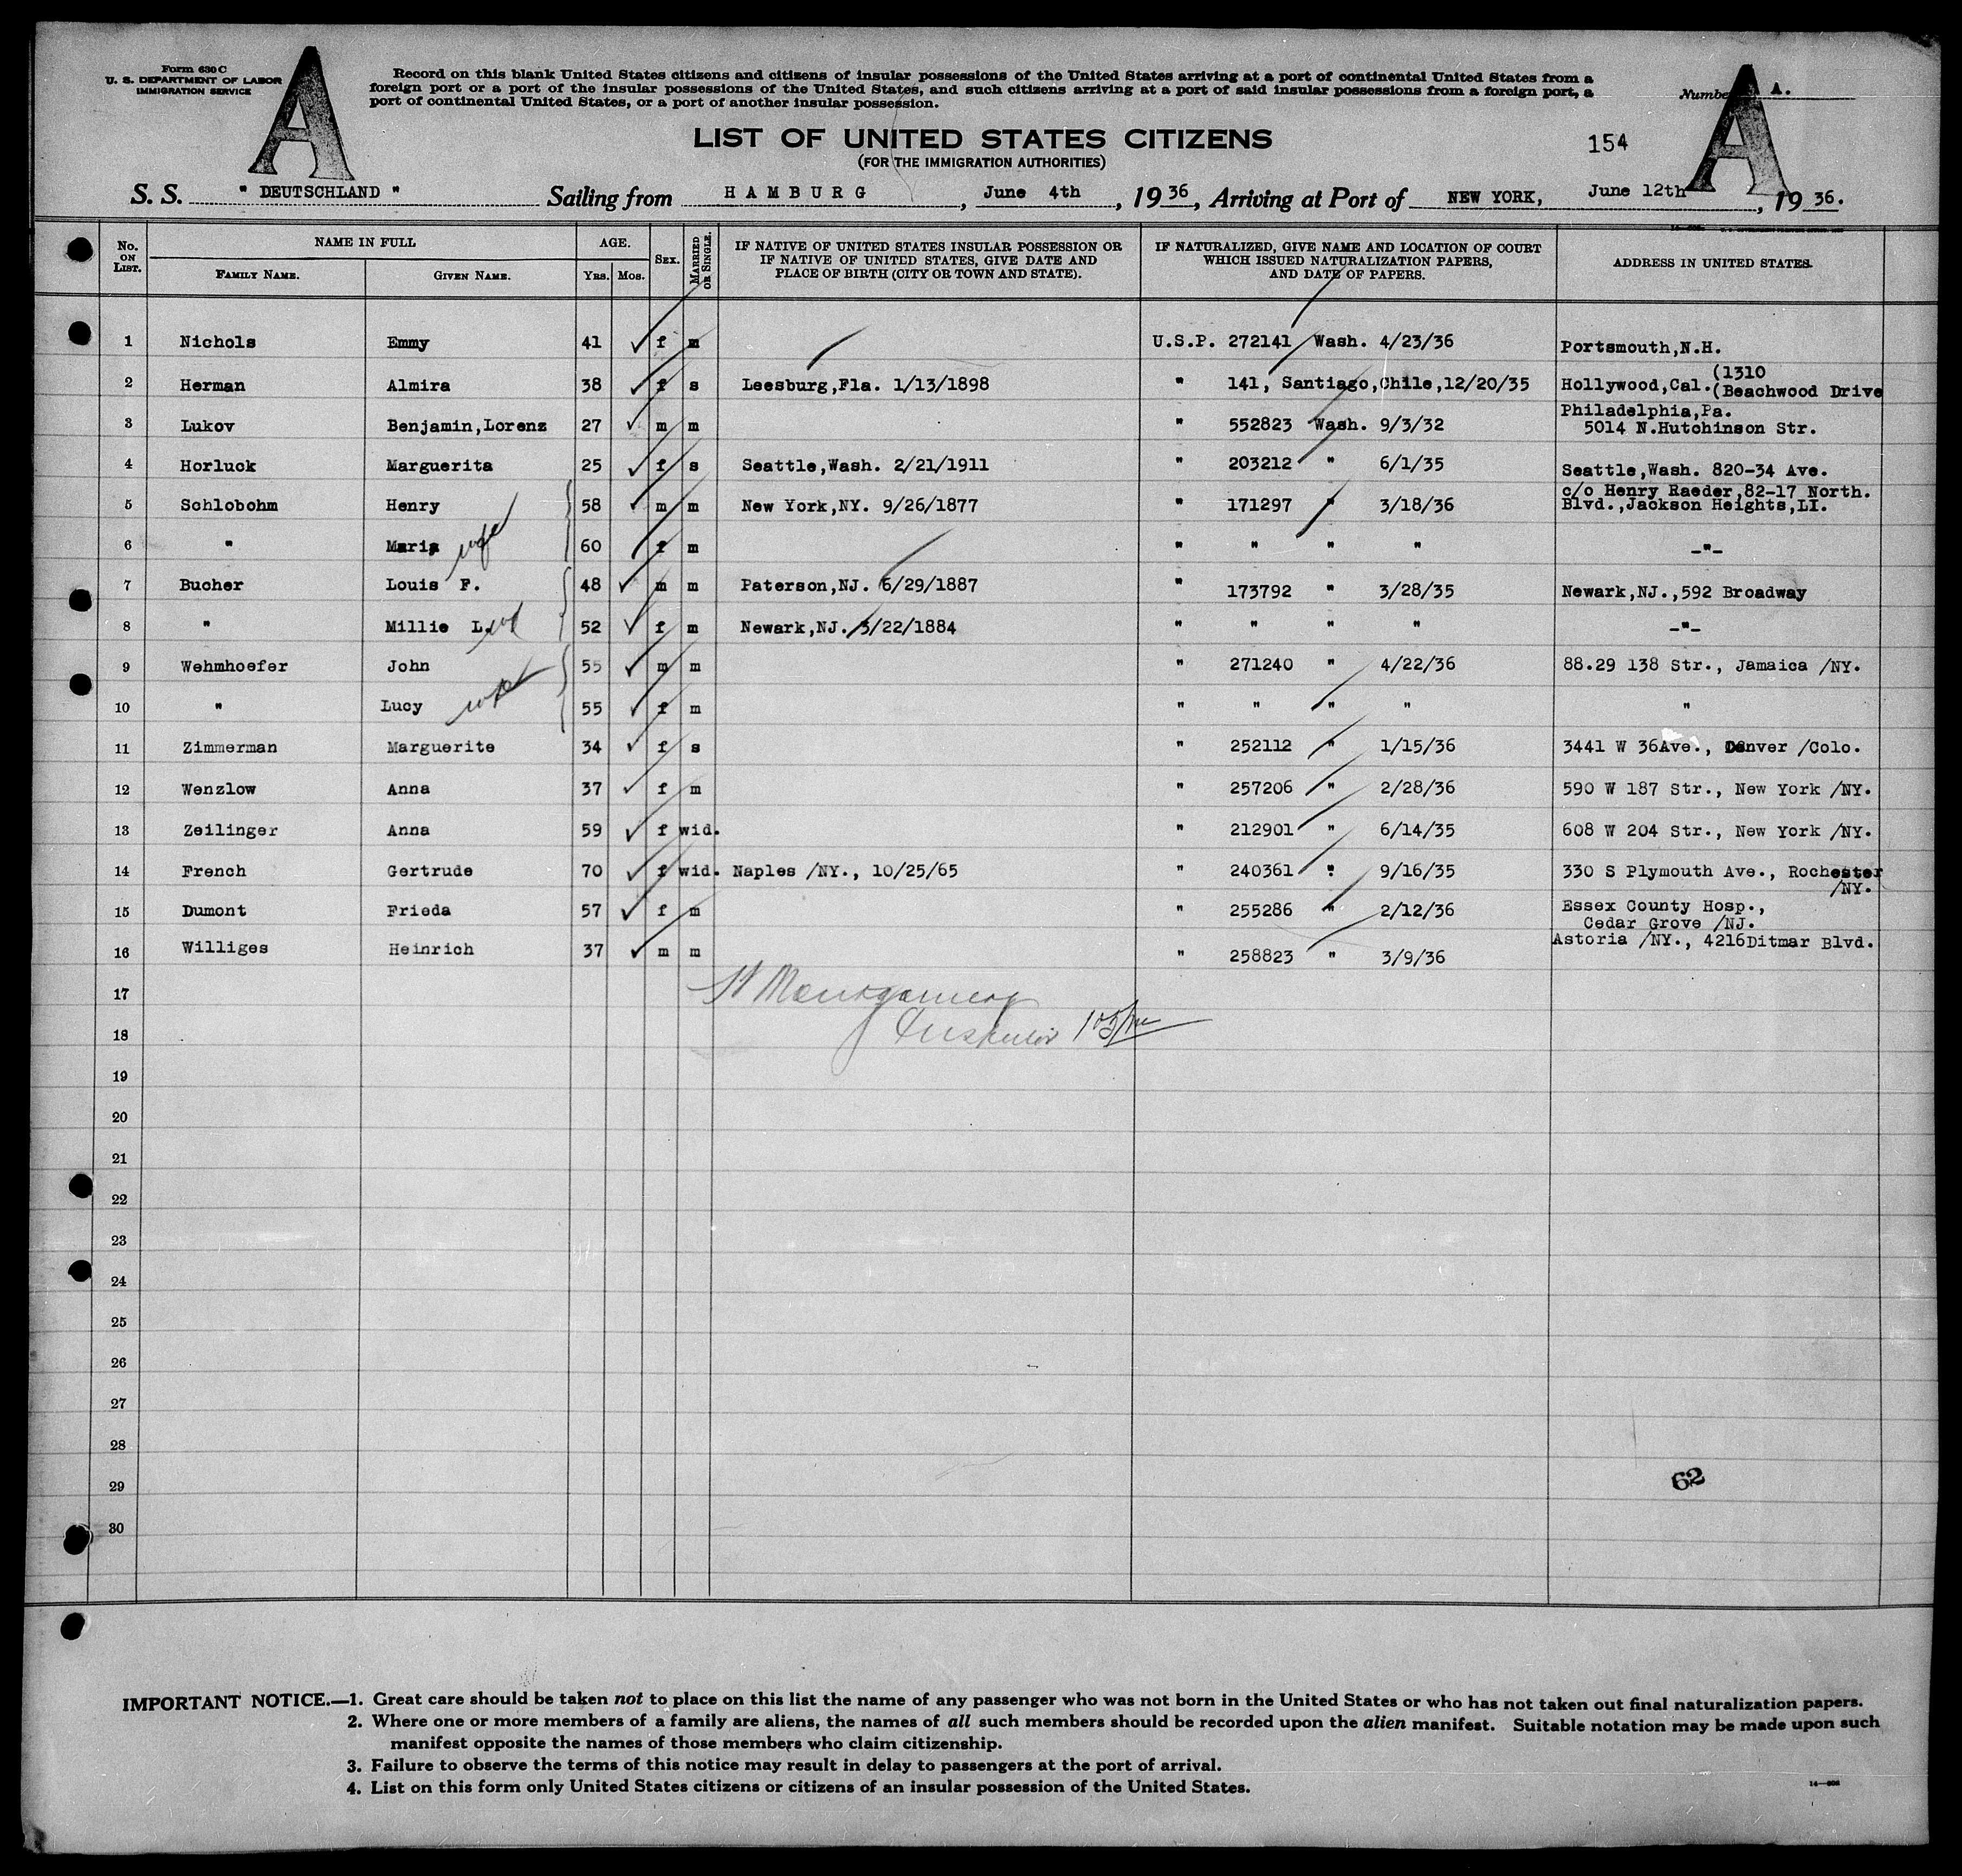 Form 630 C
U. S. DEPARTMENT OF LABOR
IMMIGRATION SERVICE
A
Record on this blank United States citizens and citizens of insular possessions of the United States arriving at a port of continental United States from a
foreign port or a port of the insular possessions of the United States, and such citizens arriving at a port of said insular possessions from a foreign port, a
port of continental United States, or a port of another insular possession.
Number A.
A
LIST OF UNITED STATES CITIZENS
(FOR THE IMMIGRATION AUTHORITIES)
154
S. S. " DEUTSCHLAND " Sailing from HAMBURG, June 4th, 1936, Arriving at Port of NEW YORK, June 12th, 1936.
No. ON LIST. NAME IN FULL FAMILY NAME. GIVEN NAME. AGE. YRS. MOS. SEX. MARRIED OR SINGLE. IF NATIVE OF UNITED STATES INSULAR POSSESSION OR IF NATIVE OF UNITED STATES, GIVE DATE AND PLACE OF BIRTH (CITY OR TOWN AND STATE). IF NATURALIZED, GIVE NAME AND LOCATION OF COURT WHICH ISSUED NATURALIZATION PAPERS, AND DATE OF PAPERS. ADDRESS IN UNITED STATES.
1 Nichols Emmy 41 f m U.S.P. 272141 Wash. 4/23/36 Portsmouth,N.H.
2 Herman Almira 38 f s Leesburg,Fla. 1/13/1898 " 141, Santiago,Chile,12/20/35 Hollywood,Cal.(1310 (Beachwood Drive
3 Lukov Benjamin,Lorenz 27 m m " 552823 Wash. 9/3/32 Philadelphia,Pa. 5014 N.Hutchinson Str.
4 Horluck Marguerita 25 f s Seattle,Wash. 2/21/1911 " 203212 " 6/1/35 Seattle,Wash. 820-34 Ave.
5 Schlobohm Henry 58 m m New York,NY. 9/26/1877 " 171297 " 3/18/36 c/o Henry Raeder,82-17 North. Blvd.,Jackson Heights,LI.
6 " Maria wife 60 f m " " " " -"-
7 Bucher Louis F. 48 m m Paterson,NJ. 6/29/1887 " 173792 " 3/28/35 Newark,NJ.,592 Broadway
8 " Millie L. 52 f m Newark,NJ. 3/22/1884 " " " " -"-
9 Wehmhoefer John 55 m m " 271240 " 4/22/36 88.29 138 Str., Jamaica /NY.
10 " Lucy wife 55 f m " " " " "
11 Zimmerman Marguerite 34 f s " 252112 " 1/15/36 3441 W 36Ave., Denver /Colo.
12 Wenzlow Anna 37 f m " 257206 " 2/28/36 590 W 187 Str., New York /NY.
13 Zeilinger Anna 59 f wid. " 212901 " 6/14/35 608 W 204 Str., New York /NY.
14 French Gertrude 70 f wid. Naples /NY., 10/25/65 " 240361 " 9/16/35 330 S Plymouth Ave., Rochester /NY.
15 Dumont Frieda 57 f m " 255286 " 2/12/36 Essex County Hosp., Cedar Grove /NJ.
16 Williges Heinrich 37 m m " 258823 " 3/9/36 Astoria /NY., 4216Ditmar Blvd.
17 Montgomery
18 Inspector
19
20
21
22
23
24
25
26
27
28
29
62
30
IMPORTANT NOTICE.—1. Great care should be taken not to place on this list the name of any passenger who was not born in the United States or who has not taken out final naturalization papers.
2. Where one or more members of a family are aliens, the names of all such members should be recorded upon the alien manifest. Suitable notation may be made upon such
manifest opposite the names of those members who claim citizenship.
3. Failure to observe the terms of this notice may result in delay to passengers at the port of arrival.
4. List on this form only United States citizens or citizens of an insular possession of the United States.